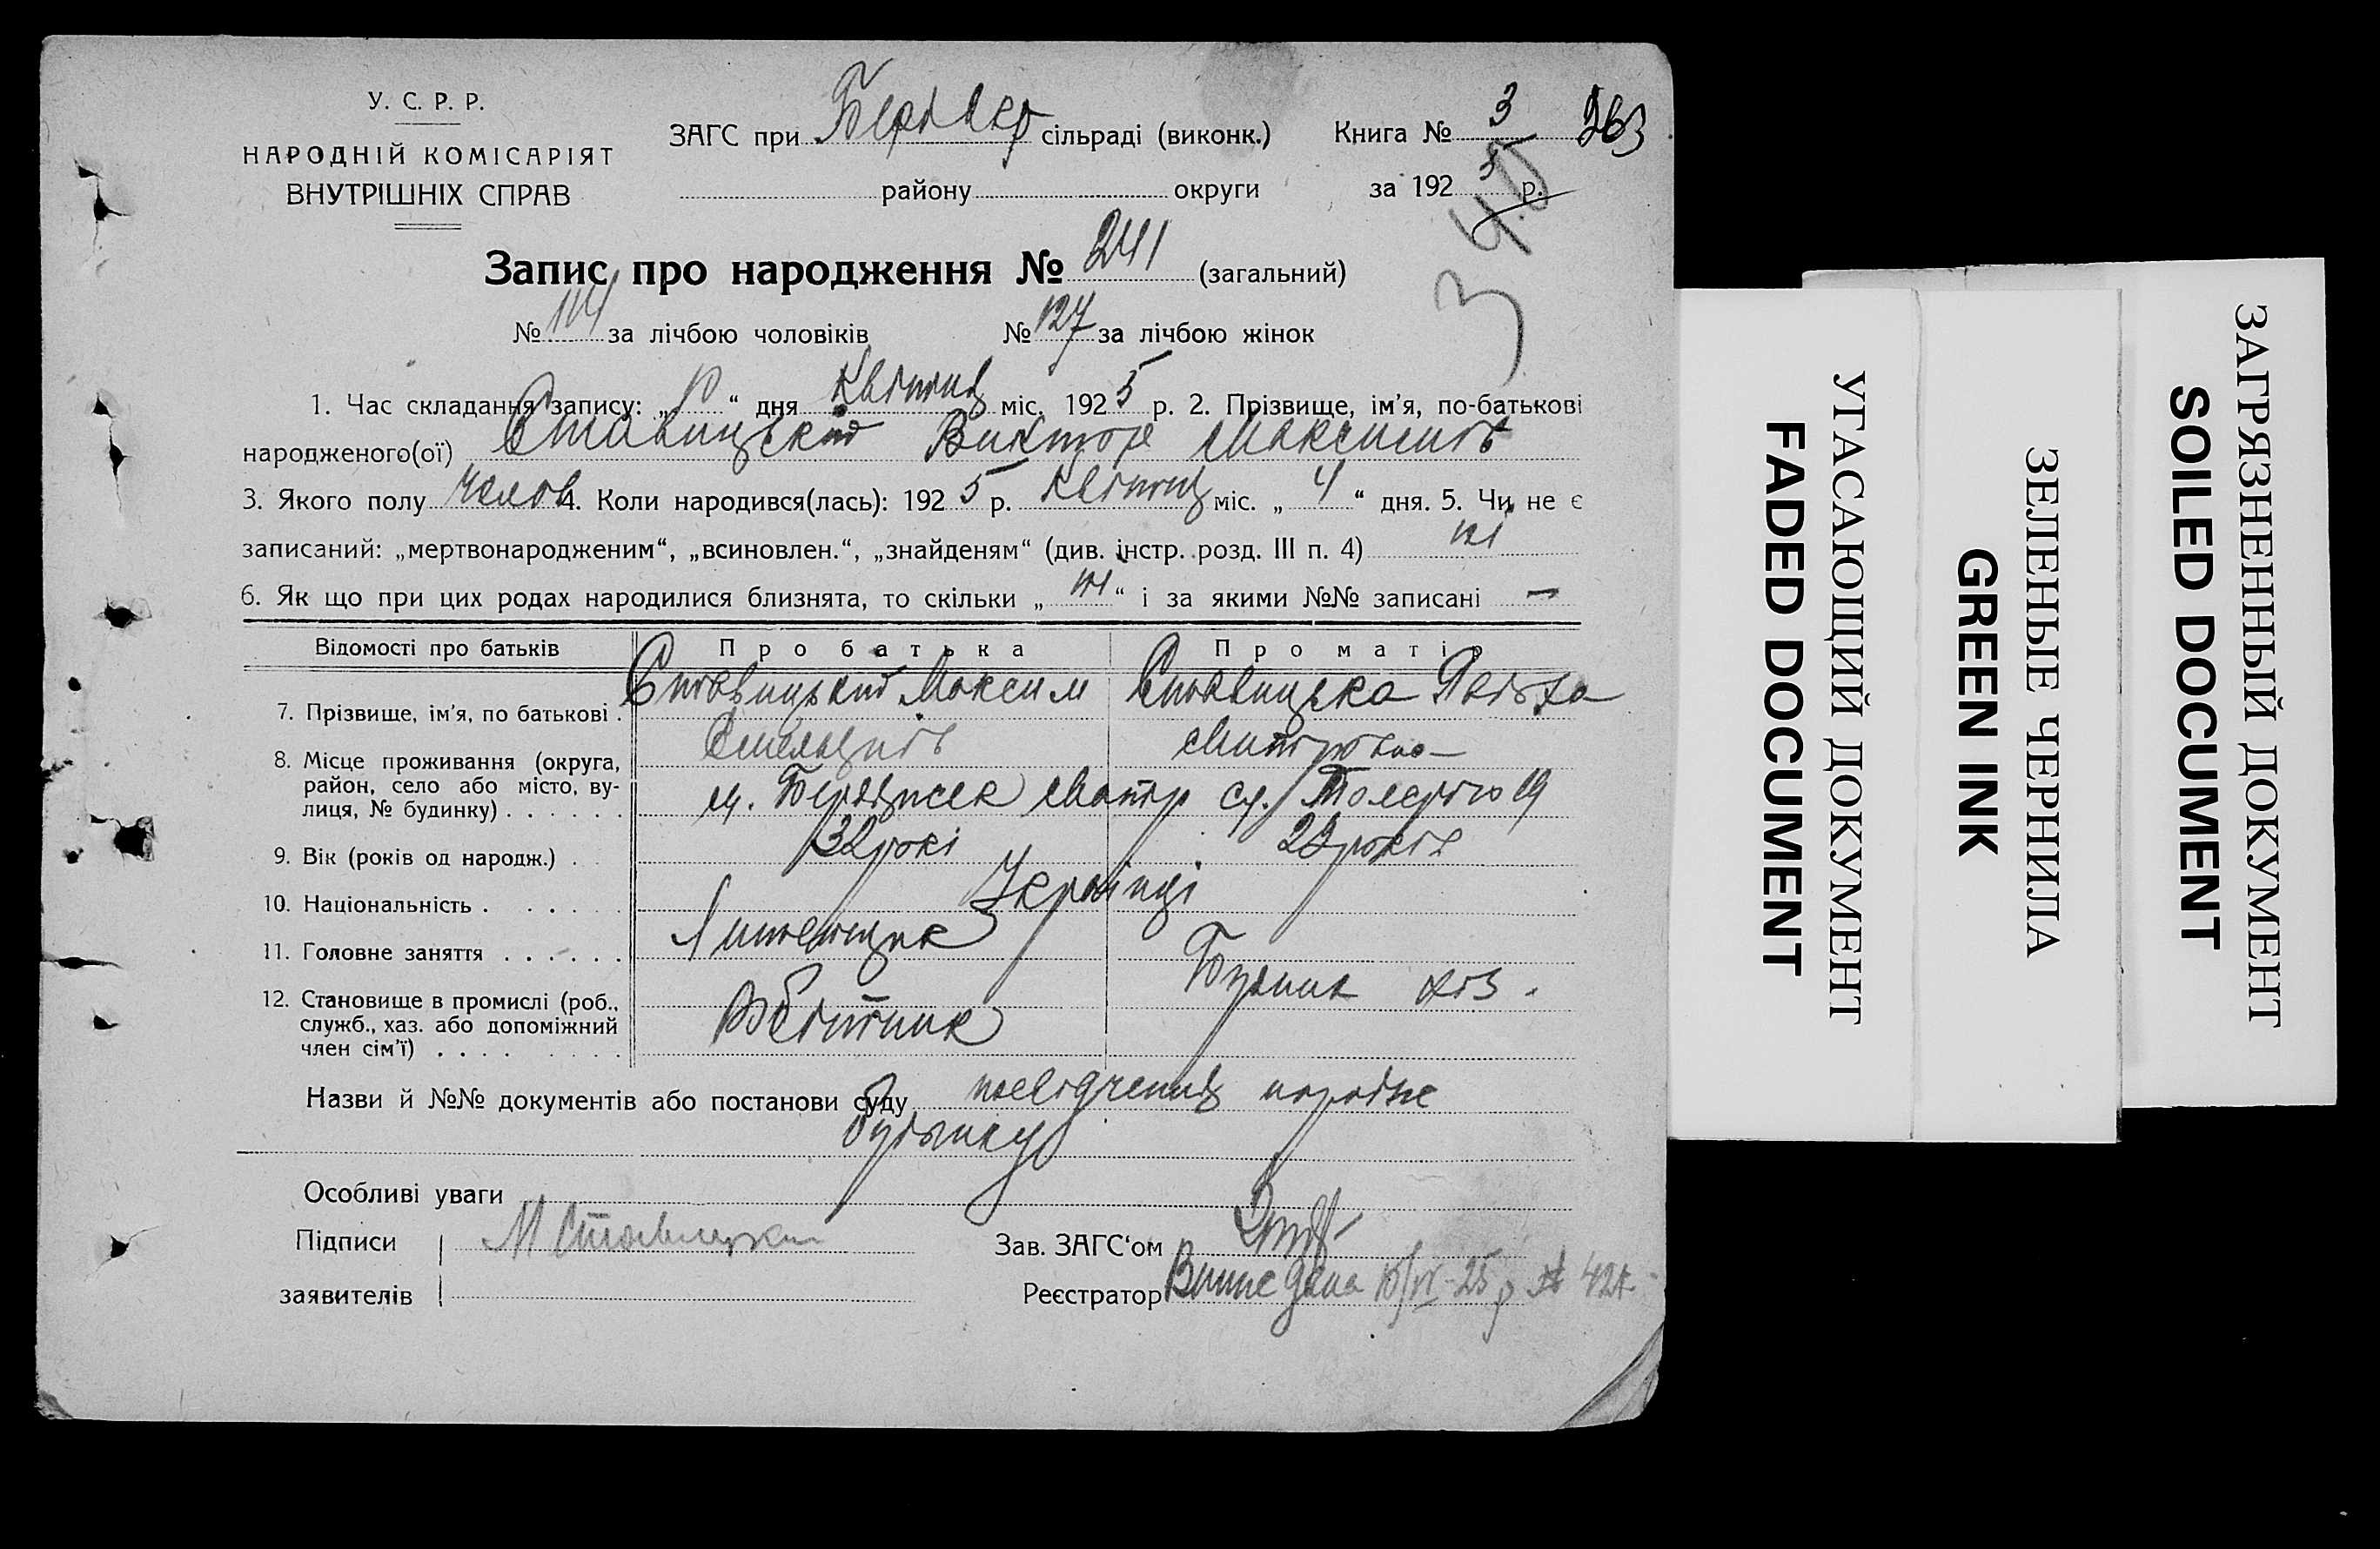 У. С. Р. Р.
НАРОДНІЙ КОМІСАРІЯТ
ВНУТРІШНІХ СПРАВ
ЗАГС при сільраді (виконк.)
району округи
Книга № 3 263
за 192 5 р.
Запис про народження № 241 (загальний)
№ 114 за лічбою чоловіків № 127 за лічбою жінок
1. Час складання запису: „ 10 “ дня Квітня міс. 192 5 р. 2. Прізвище, ім’я, по-батькові
народженого(ої) Ставицький Виктор Максимів
3. Якого полу 4. Коли народився(лась): 192 5 р. Квітня міс. „ 4 “ дня. 5. Чи не є
записаний: „мертвонародженим“, „всиновлен.“, „знайденям“ (див. інстр. розд. III п. 4) ні
6. Як що при цих родах народилися близнята, то скільки „ ні “ і за якими №№ записані —
Відомості про батьків Про батька Про матір
7. Прізвище, ім’я, по батькові . Ставицький Максим Ставицька
8. Місце проживання (округа,
район, село або місто, ву-
лиця, № будинку) . . . . . . м.
9. Вік (років од народж.) . 32 рокі років
10. Національність . . . . . Українці
11. Головне заняття . . . . . .
12. Становище в промислі (роб.,
служб., хаз. або допоміжний
член сім’ї) . . . . . . . .
Назви й №№ документів або постанови суду посвідчення
будинку
Особливі уваги
Підписи М Ставицкий Зав. ЗАГС‘ом
заявителів Реєстратор 10/IV-25 р №
ЗАГРЯЗНЕННЫЙ ДОКУМЕНТ
SOILED DOCUMENT
ЗЕЛЕНЫЕ ЧЕРНИЛА
GREEN INK
УГАСАЮЩИЙ ДОКУМЕНТ
FADED DOCUMENT